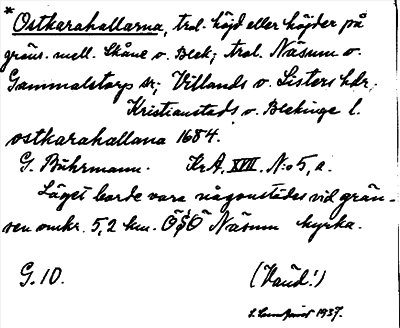 *Ostkarahallarna, trol. höjd eller höjder på
gräns. mell. Skåne o. Blek; trol. Näsum o.
Gammalstorps sr; Villands o. Listers hdr;
Kristianstads o. Blekinge l.
ostkarahallana 1684.
G. Buhrmann. KrA, XVII. N:o 5, a.
Läget borde vara någonstädes vid grän-
sen omkr. 5,2 km. ÖSÖ Näsum kyrka.
G. 10. (Handl.)
1937.